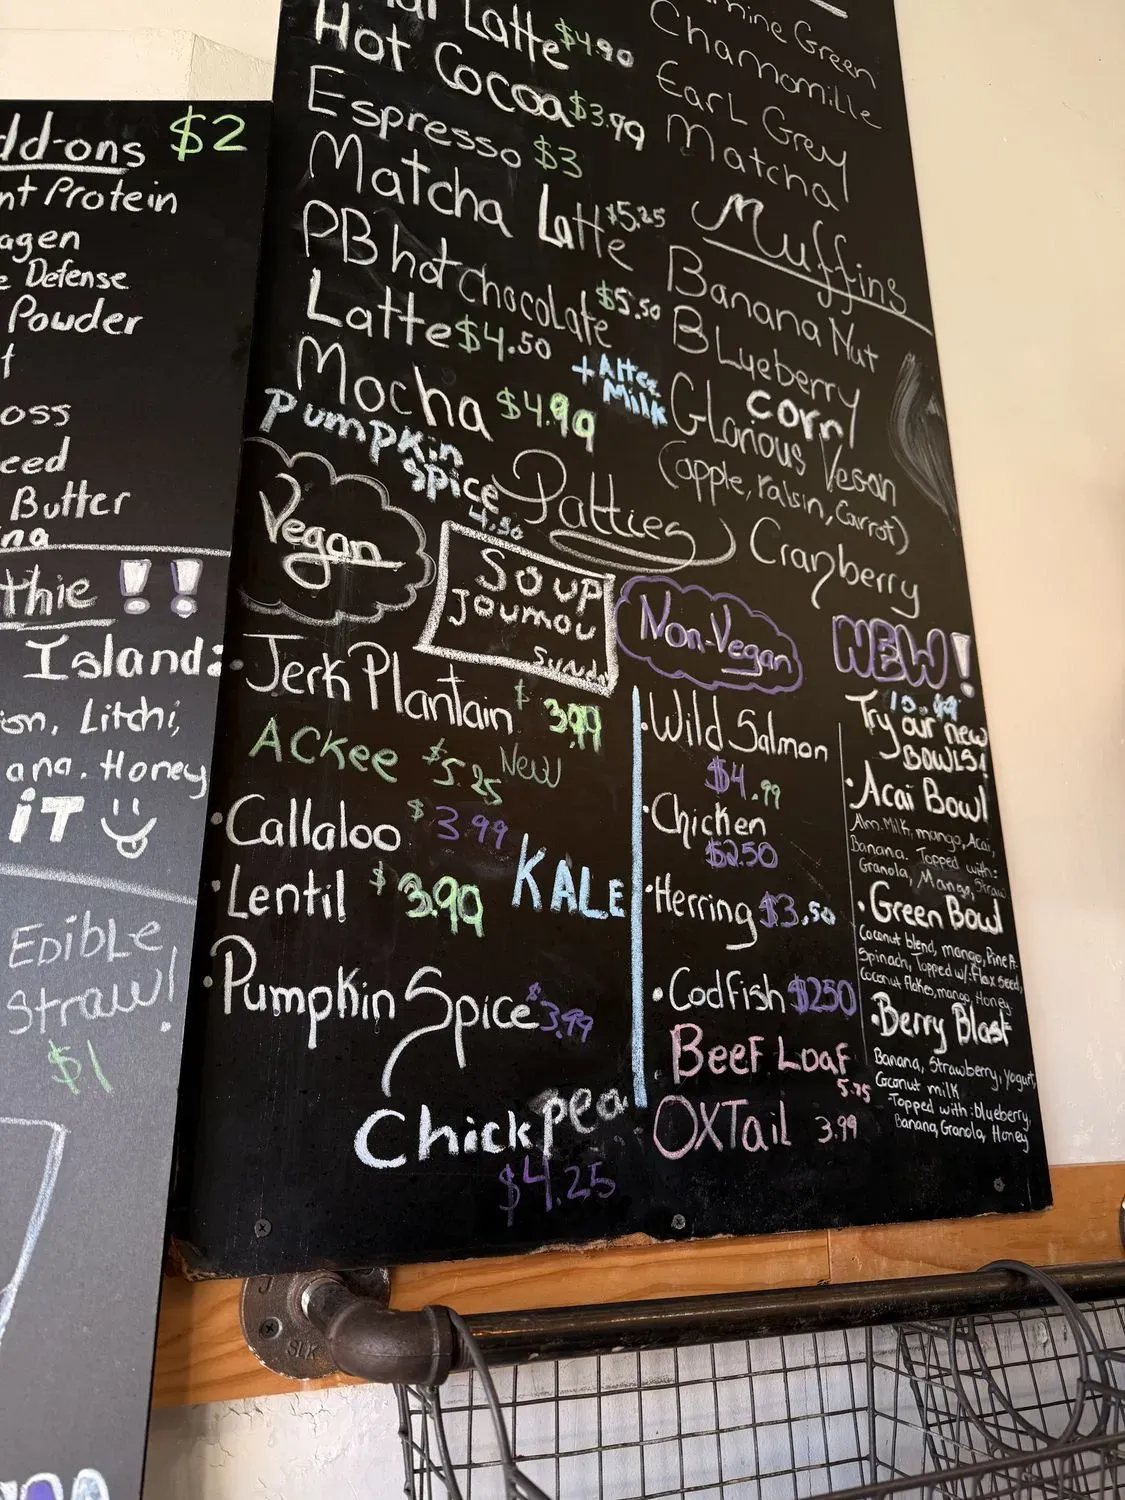 $2
Protein
Defense
Powder
Butter
!!
Island
Litchi,
Honey
iT
Edible
Straw!
$1
Latte $4.90
Hot Cocoa $3.99
Espresso $3
Matcha Latte $5.25
PB hot chocolate $5.50
Latte $4.50
+ Alter Milk
Mocha $4.99
Pumpkin
Spice
4.50
Green
Chamomille
Earl Grey
Matcha
Muffins
Banana Nut
Blueberry
Corn
Glorious Vegan
(apple, raisin, Carrot)
Cranberry
Patties
Vegan
Soup
Joumou
Sunday
Jerk Plantain $3.99
Ackee $5.25 New
Callaloo $3.99
Lentil $3.99
KALE
Pumpkin Spice $3.99
Chickpea
$4.25
Non-Vegan
Wild Salmon
$4.99
Chicken
$2.50
Herring $3.50
Codfish $250
Beef Loaf
5.75
OXTail 3.99
NEW!
10.99
Try our new
BOWLS!
Acai Bowl
Alm. Milk, mango, Acai,
Banana. Topped with:
Granola, Mango, Straw
Green Bowl
Coconut blend, mango, Pine A.
Spinach, Topped w/: Flax seed,
Coconut flakes, mango, Honey
Berry Blast
Banana, Strawberry, yogurt,
Coconut milk
Topped with: blueberry,
Banana, Granola, Honey